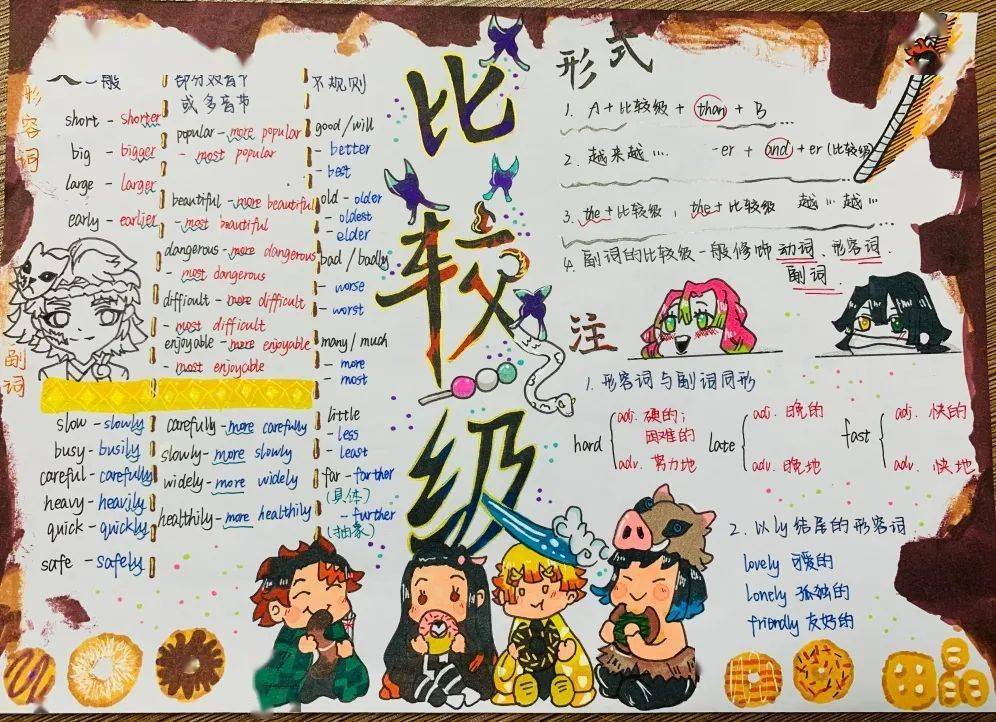 形容词
一般
short - shorter
big - bigger
large - larger
early - earlier
部分双音节
或多音节
popular - more popular
- most popular
beautiful - more beautiful
- most beautiful
dangerous - more dangerous
- most dangerous
difficult - more difficult
- most difficult
enjoyable - more enjoyable
- most enjoyable
不规则
good/will
- better
- best
old - older
- oldest
- elder
bad / badly
- worse
- worst
many / much
- more
- most
little
- less
- least
far - farther
(具体)
- further
(抽象)
副词
slow - slowly
busy - busily
careful - carefully
heavy - heavily
quick - quickly
safe - safely
carefully - more carefully
slowly - more slowly
widely - more widely
healthily - more healthily
比较级
形式
1. A + 比较级 + than + B
2. 越来越… -er + and + er (比较级)
3. the + 比较级, the + 比较级 越… 越…
4. 副词的比较级一般修饰动词.形容词.
副词
注
1. 形容词与副词同形
hard
adj. 硬的;
困难的
adv. 努力地
late
adj. 晚的
adv. 晚地
fast
adj. 快的
adv. 快地
2. 以ly结尾的形容词
lovely 可爱的
lonely 孤独的
friendly 友好的